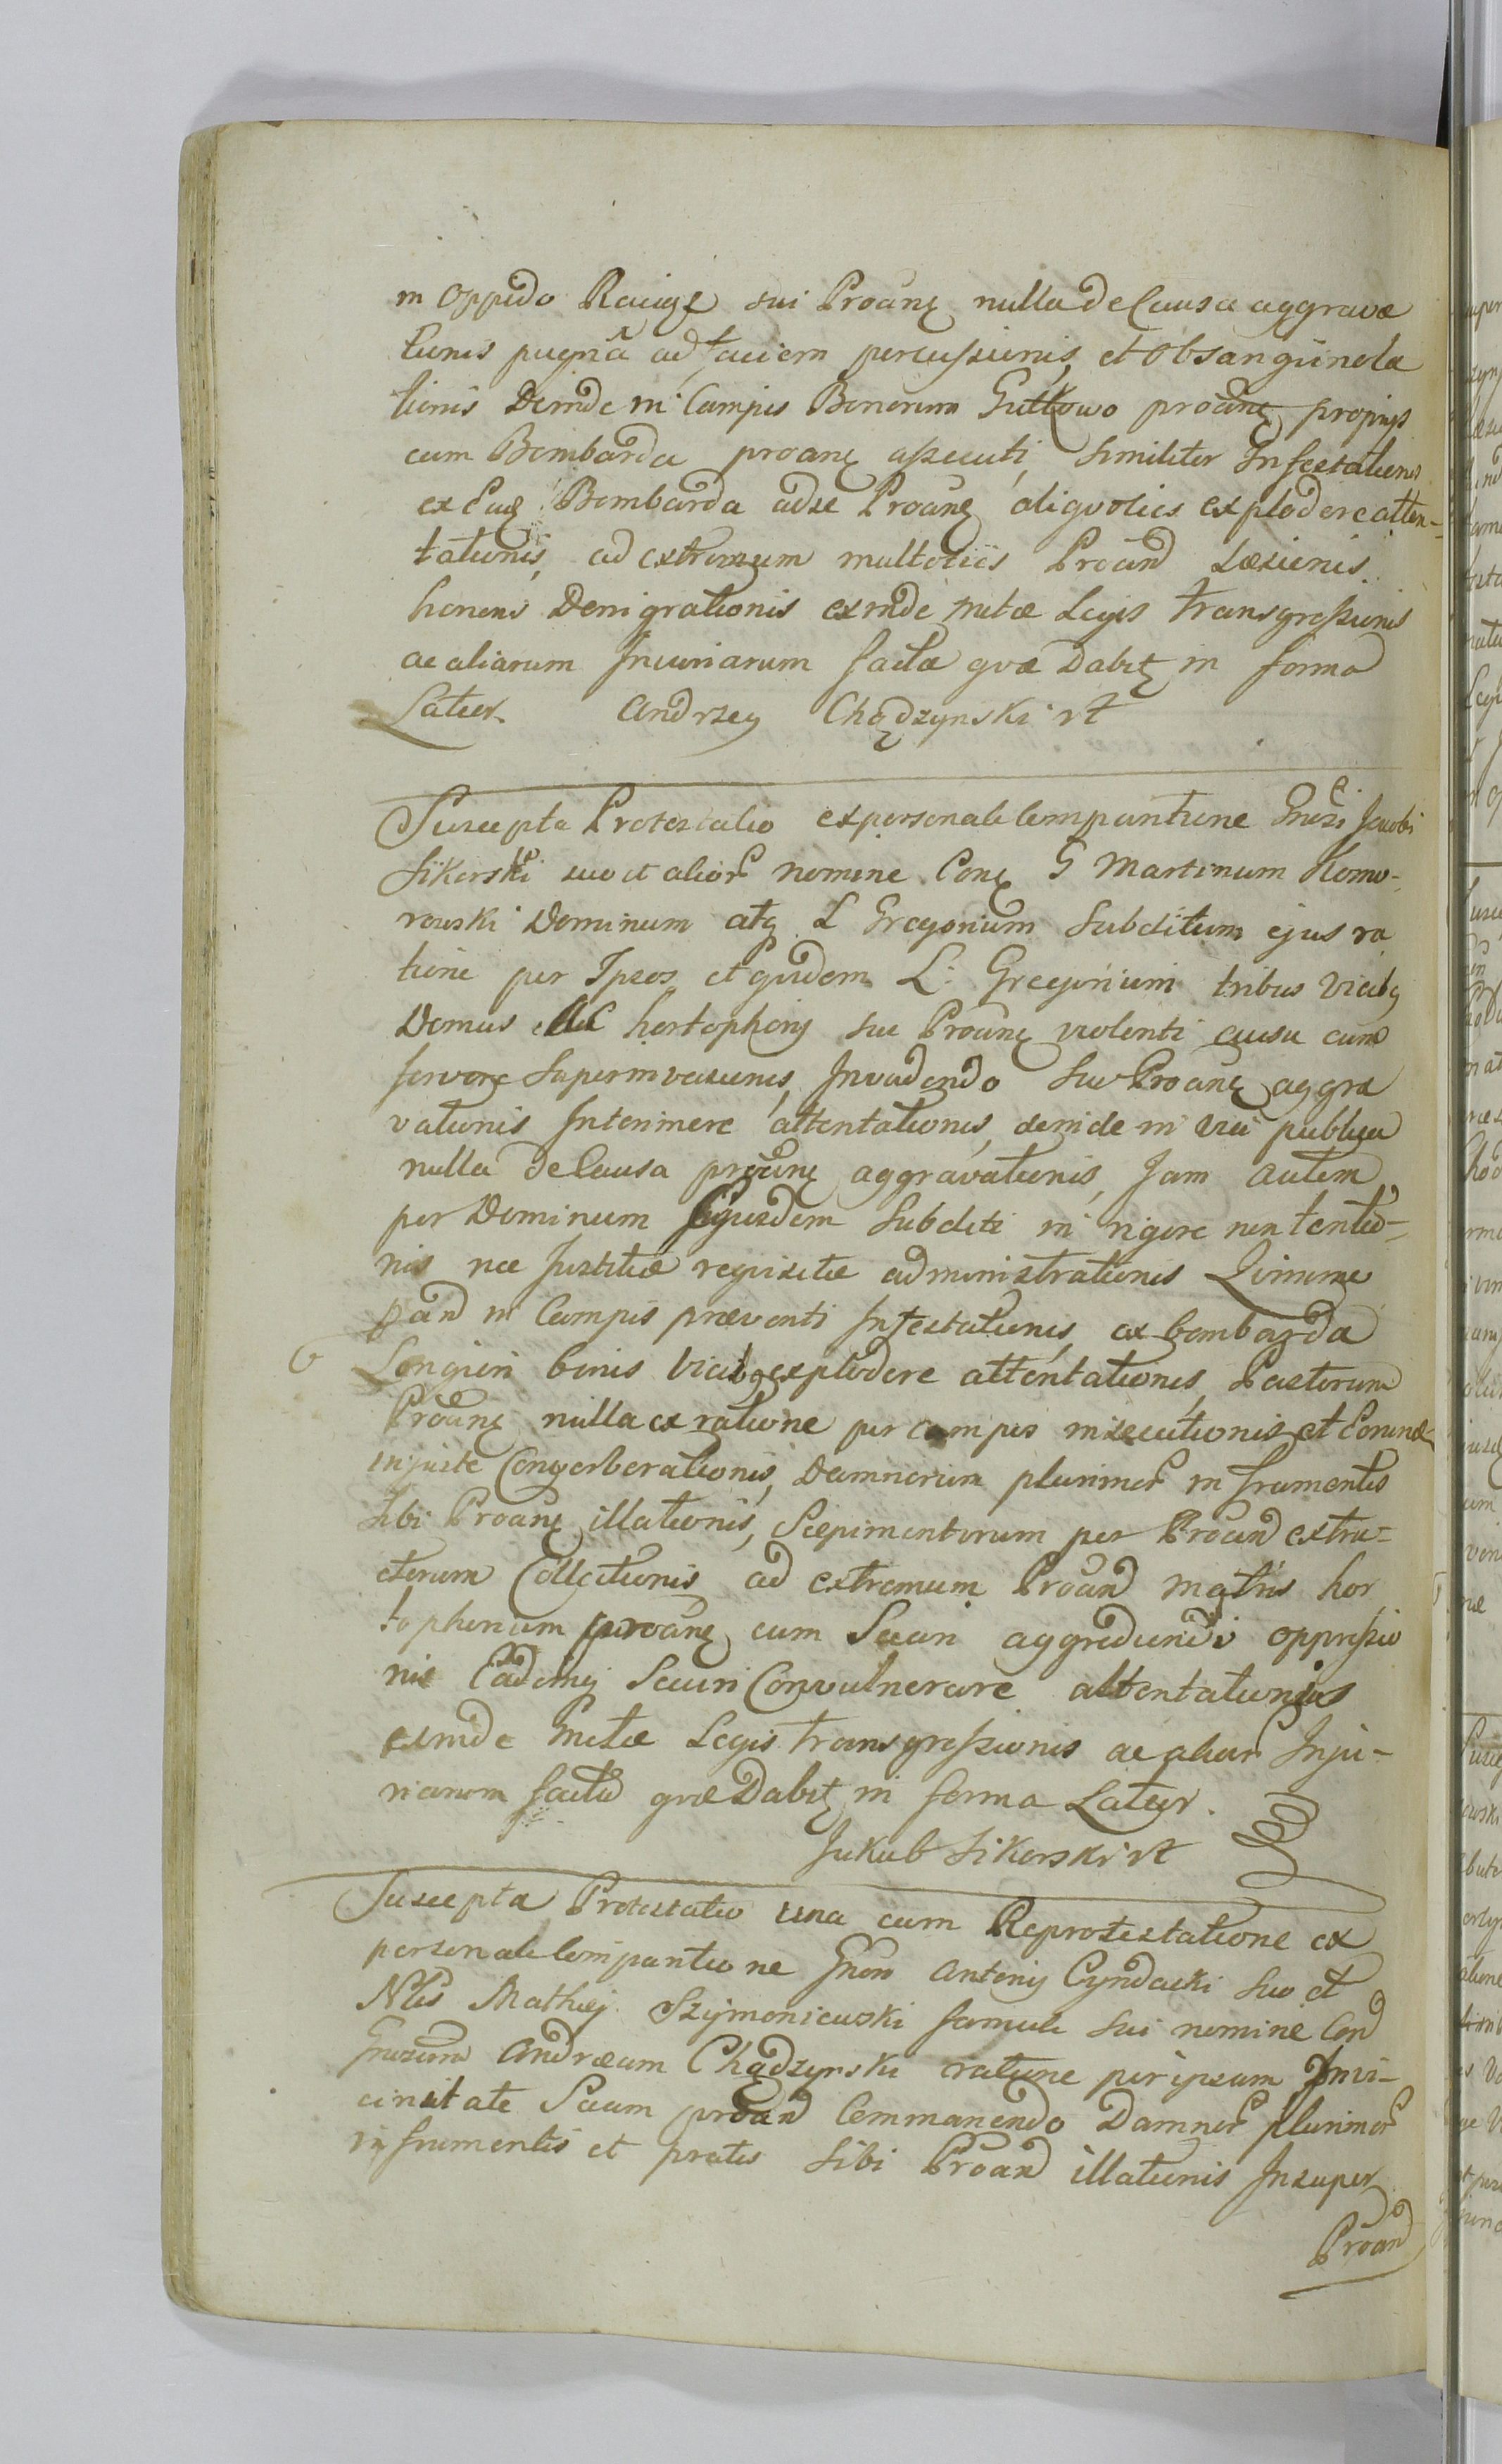 in Oppido Raciąż sui Proãnę nulla de Causa aggrava
tionis pugnâ ad faciem percussionis, et Obsangvinola
tionis Deinde in Campis Bonorum Gutkowo proãnę propriis
cum Bombarda proanę assecuti, Similiter Infestationis
ex Eaq Bombarda ad se Proãnę aliqvoties explodere atten-
tationis, ad extremum multoties Proãnd Læsionis.
honoris Denigrationis exinde mitæ Legis transgressionis
ac aliarum Iniuriarum facta qvæ Dabitę in forma
Latior. Andrzey Chądzynski rt
Suscepta Protestatio ex personali Compartione Gnosi Jacobi
Sikorski suo et alior nomine Conę G Martinum Komo-
rowski Dominum atq L Gregorium Subditum ejus ra
tione per Ipsos et qvidem L: Gregorium tribus vicibq
Domus ac hortophorij sui Proãnę violenti ausu cum
fervore Superinvasionis, Invadendo Suo Proãnę aggra
vationis Interimere attentationis, deinde in via publica
nulla de Causa proãnę aggravationis, Jam autem
per Dominum Ejusdem Subditi in rigore non tentio-
nis nec Justitiæ reqvisitæ administrationis Qvinimo
pãnd in Campis præventi Infestationis, ex bombarda
Longiori binis Vicibq explodere attentationis, Pastorum
Proãnę nulla ex ratione per campos insecutionis et Eorund
injuste Converberationis, Damnorum plurimor in frumentis
sibi Proãnę illationis, Sæpimentorum per Proãnd extru-
ctorum Collectionis ad extremum Proãnd matris hor
tophorium proãnę cum Securi aggrediendi oppressio
nis Eâdemq Securi Convulnerare attentationis
exinde Mitæ Legis transgressionis ac aliar Inju-
riarum facta qvæ Dabitę in forma Latior.
Jakub Sikorski rt
Suscepta Protestatio una cum Reprotestatione ex
personali Compartione Gnosi Antonij Cyndacki Suo et
Nlis Mathiej Szymoniewski famuli sui nomine Cond
Gnosum Andræum Chądzynski ratione per ipsum Invi-
cinitate Suum proãnd Commanendo Damnor plurimor
in frumentis et pratis Sibi Proãnd illationis Insuper
Proãnd